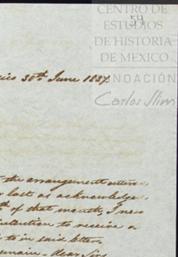 CENTRO DE
ESTUDIOS
DE HISTORIA
DE MEXICO
FUNDACIÓN
Carlos Slim
ico 30th June 1887.
the arrangement
last as acknowledge
th of that month, I
intention to receive a
to in said letter
remain, dear Sirs